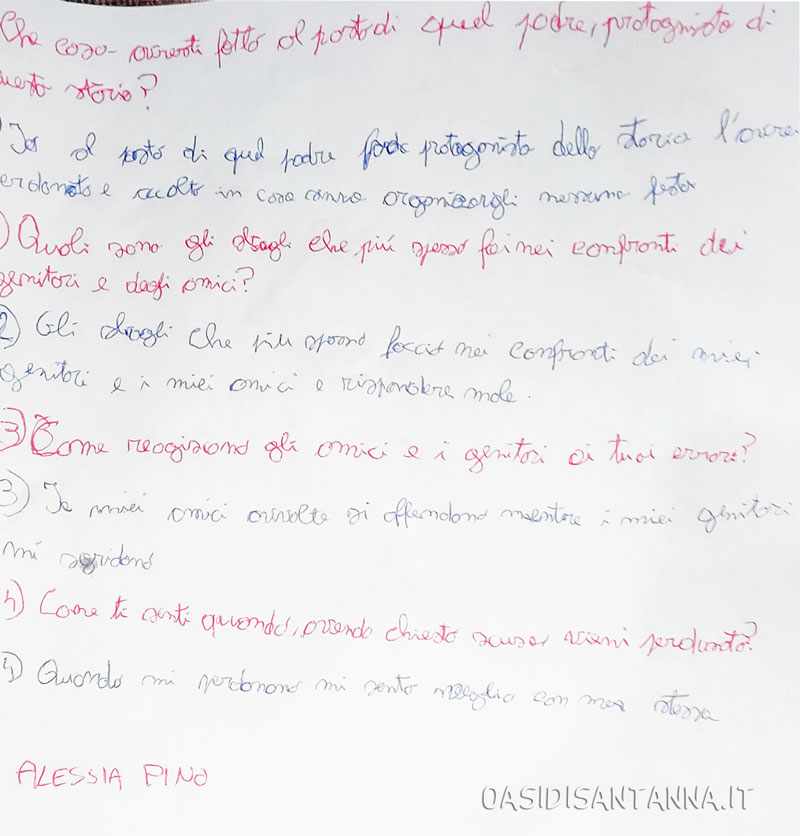 Che cosa avresti fatto al posto di quel padre, protagonista di
questa storia?
Io al posto di quel padre protagonista della storia l'avrei
perdonato e accolto in casa senza organizzargli nessuna festa
) Quali sono gli sbagli che più spesso fai nei confronti dei
genitori e dagli amici?
2) Gli sbagli che più spesso faccio nei confronti dei miei
genitori e i miei amici e rispondere male.
3) Come reagiscono gli amici e i genitori ai tuoi errori?
3) I miei amici avvolte si offendono mentre i miei genitori
mi sgridono
4) Come ti senti quando, avendo chiesto scusa, vieni perdunato?
4) Quando mi perdonono mi sento meglio con me stessa
ALESSIA PINO
OASIDISANTANNA.IT